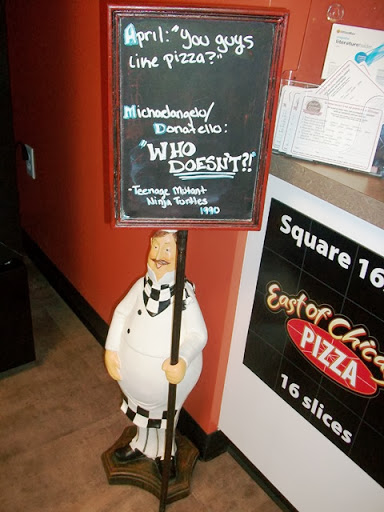 April: "You guys
like pizza?"
Michaelangelo/
Donatello:
"WHO
DOESN'T?!"
-Teenage Mutant
Ninja Turtles
1990
Square 16
East of Chica
PIZZA
16 slices